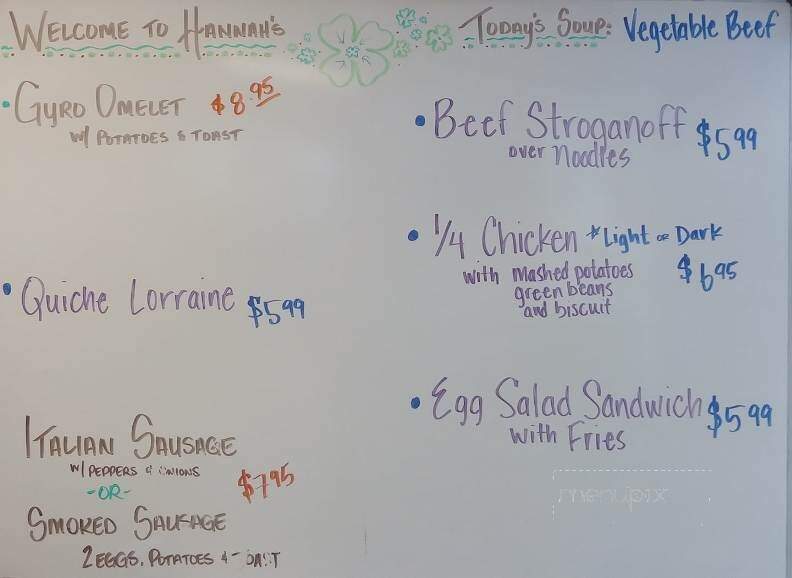 WELCOME TO HANNAH'S
GYRO OMELET $8.95
W/ POTATOES & TOAST
• Quiche Lorraine $5.99
ITALIAN SAUSAGE
W/ PEPPERS & ONIONS
-OR- $7.95
SMOKED SAUSAGE
2 EGGS, POTATOES & TOAST
TODAY'S SOUP: Vegetable Beef
• Beef Stroganoff $5.99
over Noodles
• 1/4 Chicken *Light or Dark
with mashed potatoes $6.95
green beans
and biscuit
• Egg Salad Sandwich $5.99
with Fries
menupix